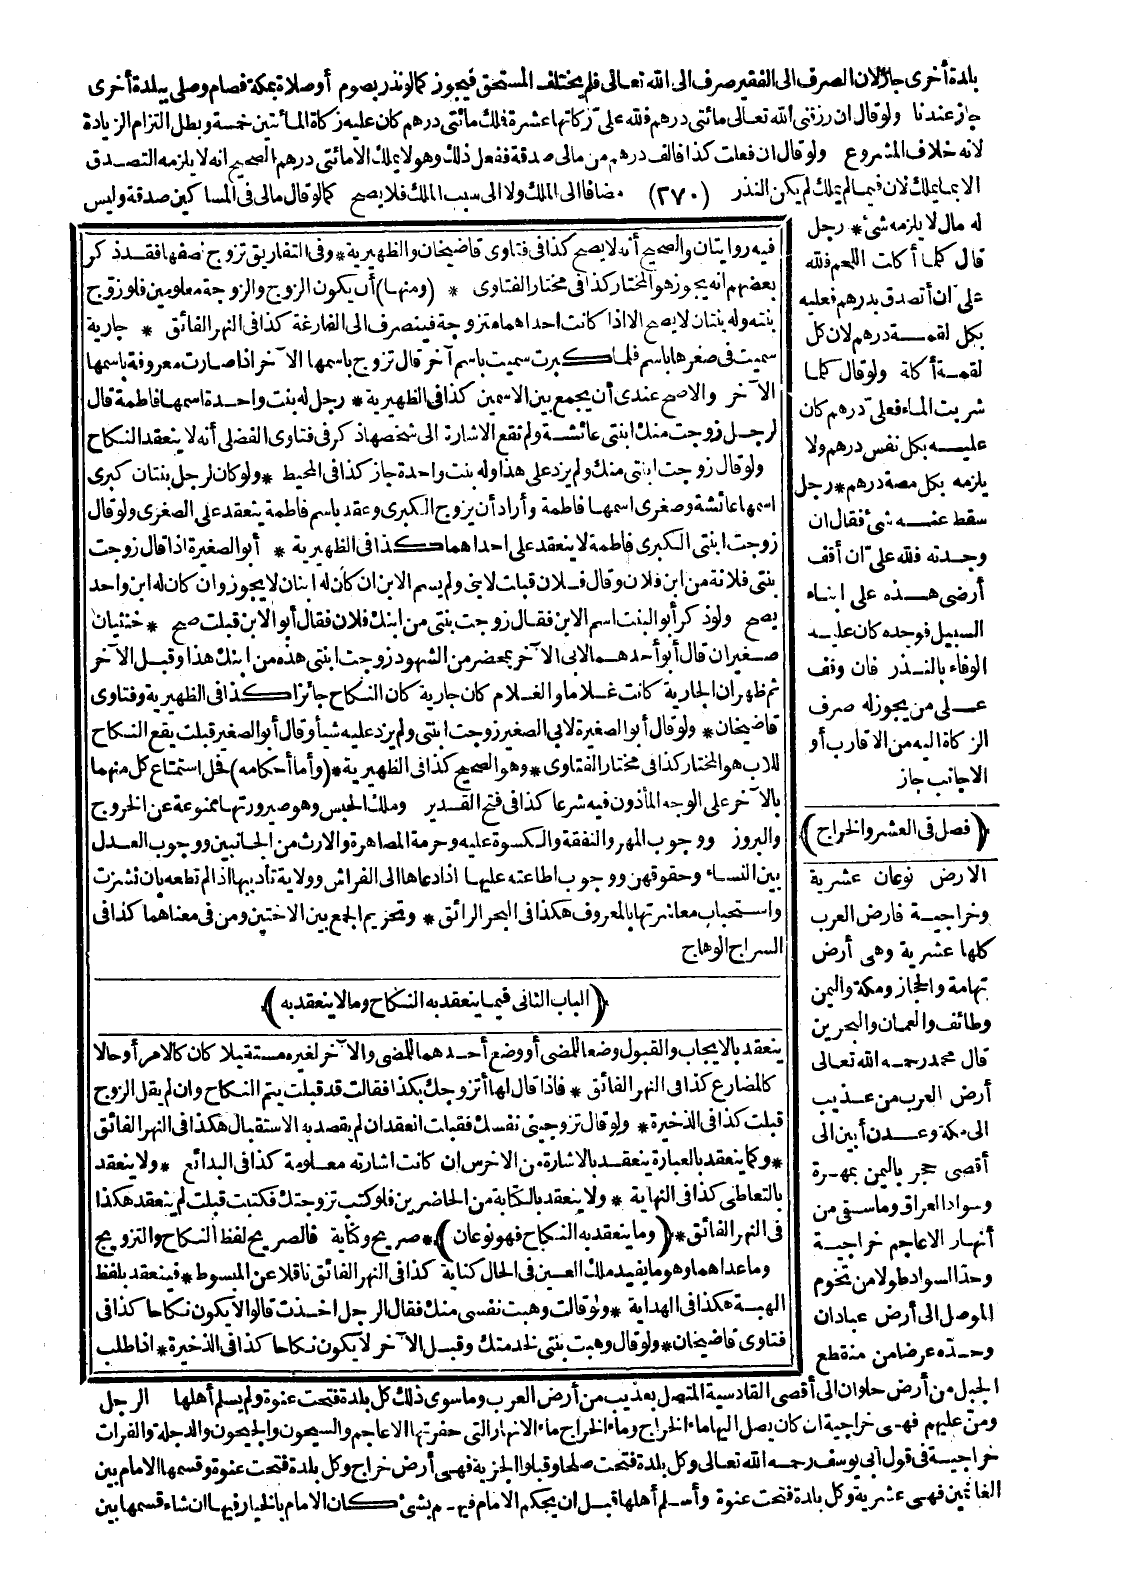 بلدة أخرى جاز لان الصرف الى الفقير صرف الى الله تعالى فلم يختلف المستحق فيجوز كمالونذر بصوم أوصلاة بمكة فصام وصلى ببلدة أخرى
جاز عندنا ولو قال ان رزقنى الله تعالى مائتى درهم فلله على زكاتها عشرة فملك مائتى درهم كان عليه زكاة المائتين خمسة وبطل التزام الزيادة
لانه خلاف المشروع ولو قال ان فعلت كذا فالف درهم من مالى صدقة ففعل ذلك وهو لا يملك الا مائتى درهم الصحيح انه لا يلزمه التصدق
الا بما يملك لان فيما لم يملك لم يكن النذر (٢٧٠) مضافا الى الملك ولا الى سبب الملك فلا يصح كمالو قال مالى فى المساكين صدقة وليس
له مال لا يلزمه شئ * رجل
قال كلما أكلت اللحم فلله
على ان أتصدق بدرهم فعليه
بكل لقمة درهم لان كل
لقمة أكلة ولو قال كلما
شربت الماء فعلى درهم كان
عليه بكل نفس درهم ولا
يلزمه بكل مصة درهم * رجل
سقط عنه شئ فقال ان
وجدته فلله على ان أقف
أرضى هذه على ابناء
السبيل فوجده كان عليه
الوفاء بالنذر فان وقف
على من يجوز له صرف
الزكاة اليه من الاقارب أو
الاجانب جاز
(فصل فى العشر والخراج)
الارض نوعان عشرية
وخراجية فارض العرب
كلها عشرية وهى أرض
تهامة والحجاز ومكة واليمن
وطائف والعمان والبحرين
قال محمد رحمه الله تعالى
أرض العرب من عذيب
الى مكة وعدن أبين الى
أقصى حجر باليمن بمهرة
وسواد العراق وما سقى من
أنهار الاعاجم خراجية
وحد السواد طولا من تخوم
الموصل الى أرض عبادان
وحده عرضا من منقطع
الجبل من أرض حلوان الى أقصى القادسية المتصل بعذيب من أرض العرب وما سوى ذلك كل بلدة فتحت عنوة ولم يسلم أهلها الرجل
ومنّ عليهم فهى خراجية ان كان يصل اليها ماء الخراج وماء الخراج ماء الانهار التى حفرتها الاعاجم والسيحون والجيحون والدجلة والفرات
خراجية فى قول أبى يوسف رحمه الله تعالى وكل بلدة فتحت صلحا وقبلوا الجزية فهى أرض خراج وكل بلدة فتحت عنوة وقسمها الامام بين
الغانمين فهى عشرية وكل بلدة فتحت عنوة وأسلم أهلها قبل ان يحكم الامام فيهم بشئ كان الامام بالخيار فيها ان شاء قسمها بين
فيه روايتان والصحيح أنه لا يصح كذا فى فتاوى قاضيخان والظهيرية * وفى التفاريق تزوج نصفها فقد ذكر
بعضهم انه يجوز هو المختار كذا فى مختار الفتاوى * (ومنها) أن يكون الزوج والزوجة معلومين فلو زوج
بنته وله بنتان لا يصح الا اذا كانت احداهما متزوجة فينصرف الى الفارغة كذا فى النهر الفائق * جارية
سميت فى صغرها باسم فلما كبرت سميت باسم آخر قال تزوج باسمها الآخر اذا صارت معروفة باسمها
الآخر والاصح عندى أن يجمع بين الاسمين كذا فى الظهيرية * رجل له بنت واحدة اسمها فاطمة قال
لرجل زوجت منك ابنتى عائشة ولم تقع الاشارة الى شخصها ذكر فى فتاوى الفضلى أنه لا ينعقد النكاح
ولو قال زوجت ابنتى منك ولم يزد على هذا وله بنت واحدة جاز كذا فى المحيط * ولو كان لرجل بنتان كبرى
اسمها عائشة وصغرى اسمها فاطمة وأراد أن يزوج الكبرى وعقد باسم فاطمة ينعقد على الصغرى ولو قال
زوجت ابنتى الكبرى فاطمة لا ينعقد على احداهما كذا فى الظهيرية * أبو الصغيرة اذا قال زوجت
بنتى فلانة من ابن فلان وقال فلان قبلت لابنى ولم يسم الابن ان كان له ابنان لا يجوز وان كان له ابن واحد
يصح ولو ذكر أبو البنت اسم الابن فقال زوجت بنتى من ابنك فلان فقال أبو الابن قبلت صح * خنثيان
صغيران قال أبو أحدهما لابى الآخر بمحضر من الشهود زوجت ابنتى هذه من ابنك هذا وقبل الآخر
ثم ظهر ان الجارية كانت غلاما والغلام كان جارية كان النكاح جائزا كذا فى الظهيرية وفتاوى
قاضيخان * ولو قال أبو الصغيرة لابى الصغير زوجت ابنتى ولم يزد عليه شيأ وقال أبو الصغير قبلت يقع النكاح
للاب هو المختار كذا فى مختار الفتاوى * وهو الصحيح كذا فى الظهيرية * (وأما أحكامه) فحل استمتاع كل منهما
بالآخر على الوجه المأذون فيه شرعا كذا فى فتح القدير وملك الحبس وهو صيرورتها ممنوعة عن الخروج
والبروز ووجوب المهر والنفقة والكسوة عليه وحرمة المصاهرة والارث من الجانبين ووجوب العدل
بين النساء وحقوقهن ووجوب اطاعته عليها اذا دعاها الى الفراش وولاية تأديبها اذا لم تطعه بان نشزت
واستحباب معاشرتها بالمعروف هكذا فى البحر الرائق * وتحريم الجمع بين الاختين ومن فى معناهما كذا فى
السراج الوهاج
(الباب الثانى فيما ينعقد به النكاح وما لا ينعقد به)
ينعقد بالايجاب والقبول وضعا للمضى أو وضع أحدهما للمضى والآخر لغيره مستقبلا كان كالامر أو حالا
كالمضارع كذا فى النهر الفائق * فاذا قال لها أتزوجك بكذا فقالت قد قبلت يتم النكاح وان لم يقل الزوج
قبلت كذا فى الذخيرة * ولو قال تزوجينى نفسك فقبلت انعقد ان لم يقصد به الاستقبال هكذا فى النهر الفائق
* وكما ينعقد بالعبارة ينعقد بالاشارة من الاخرس ان كانت اشارته معلومة كذا فى البدائع * ولا ينعقد
بالتعاطى كذا فى النهاية * ولا ينعقد بالكتابة من الحاضرين فلو كتب تزوجتك فكتبت قبلت لم ينعقد هكذا
فى النهر الفائق * (وما ينعقد به النكاح فهو نوعان) * صريح وكناية فالصريح لفظ النكاح والتزويج
وما عداهما وهو ما يفيد ملك العين فى الحال كناية كذا فى النهر الفائق ناقلا عن المبسوط * فينعقد بلفظ
الهبة هكذا فى الهداية * ولو قالت وهبت نفسى منك فقال الرجل اخذت قالوا لا يكون نكاحا كذا فى
فتاوى قاضيخان * ولو قال وهبت بنتى لخدمتك وقبل الآخر لا يكون نكاحا كذا فى الذخيرة * اذا طلب